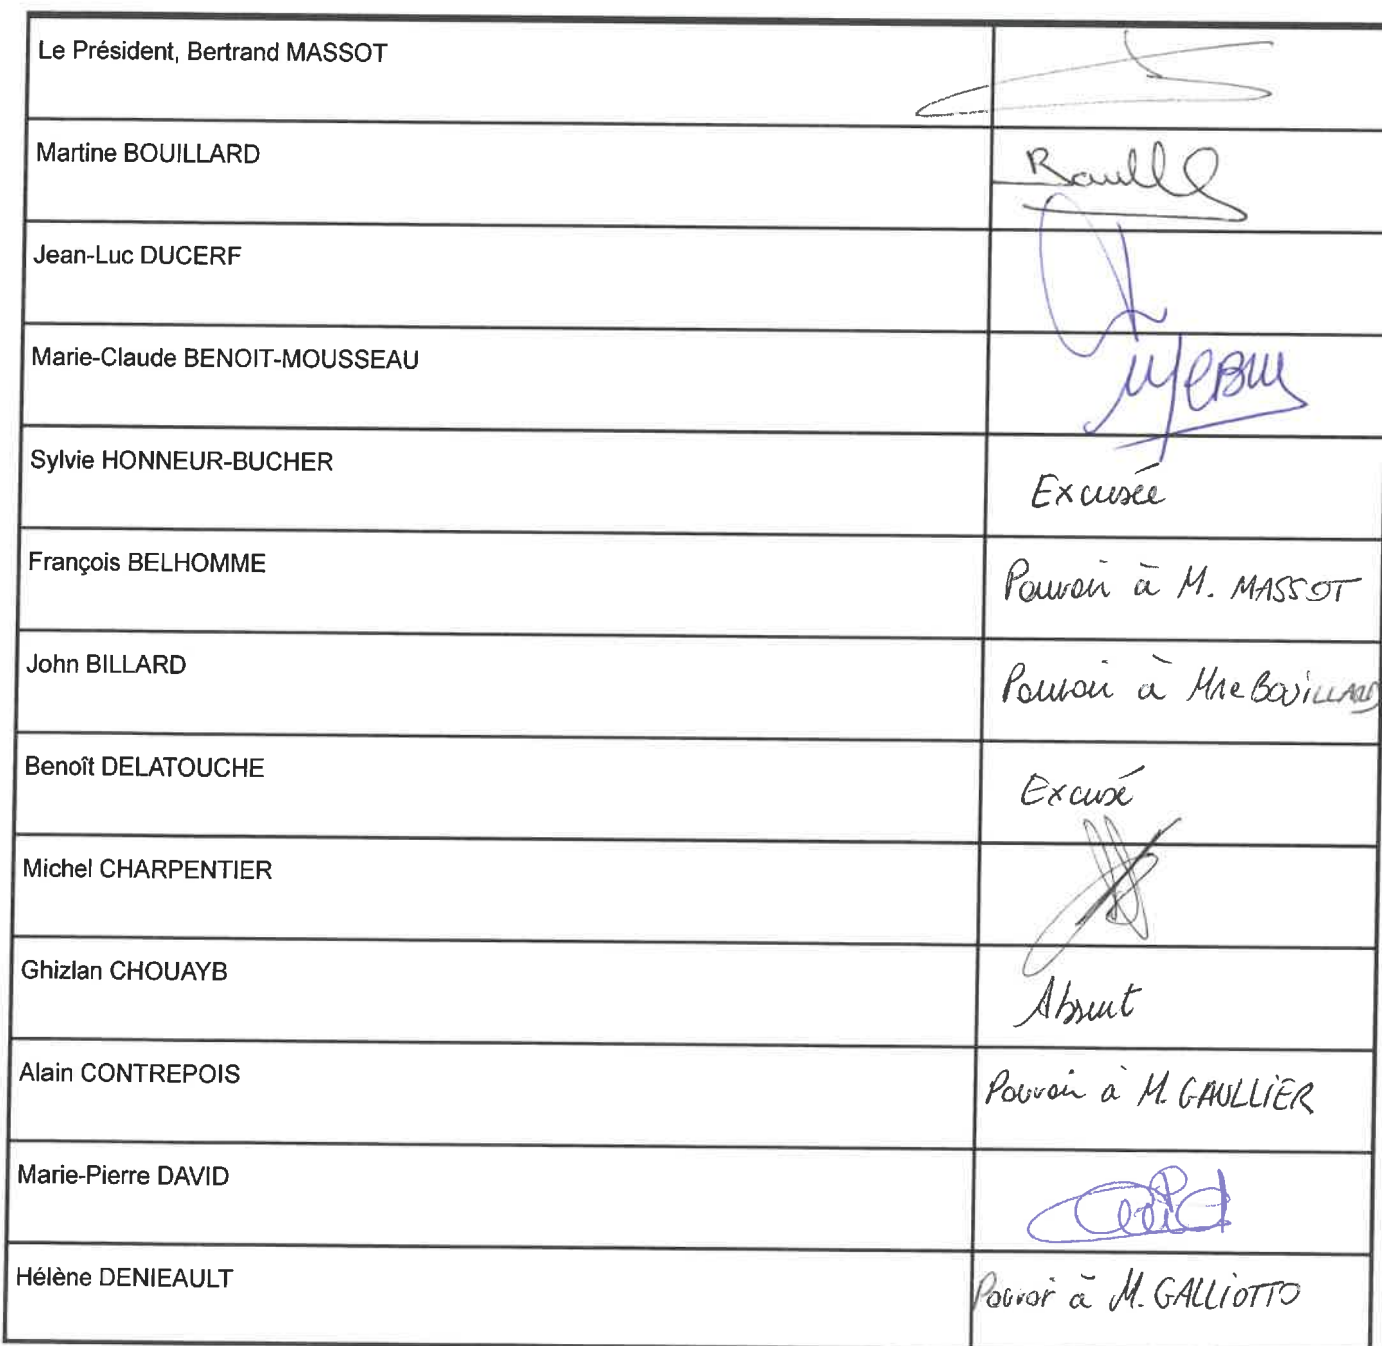 Le Président, Bertrand MASSOT
Martine BOUILLARD
Jean-Luc DUCERF
Marie-Claude BENOIT-MOUSSEAU
Sylvie HONNEUR-BUCHER
Excusée
François BELHOMME
Pouvoir à M. MASSOT
John BILLARD
Pouvoir à Mme BOUILLARD
Benoît DELATOUCHE
Excusé
Michel CHARPENTIER
Ghizlan CHOUAYB
Absent
Alain CONTREPOIS
Pouvoir à M. GAULLIER
Marie-Pierre DAVID
Hélène DENIEAULT
Pouvoir à M. GALLIOTTO